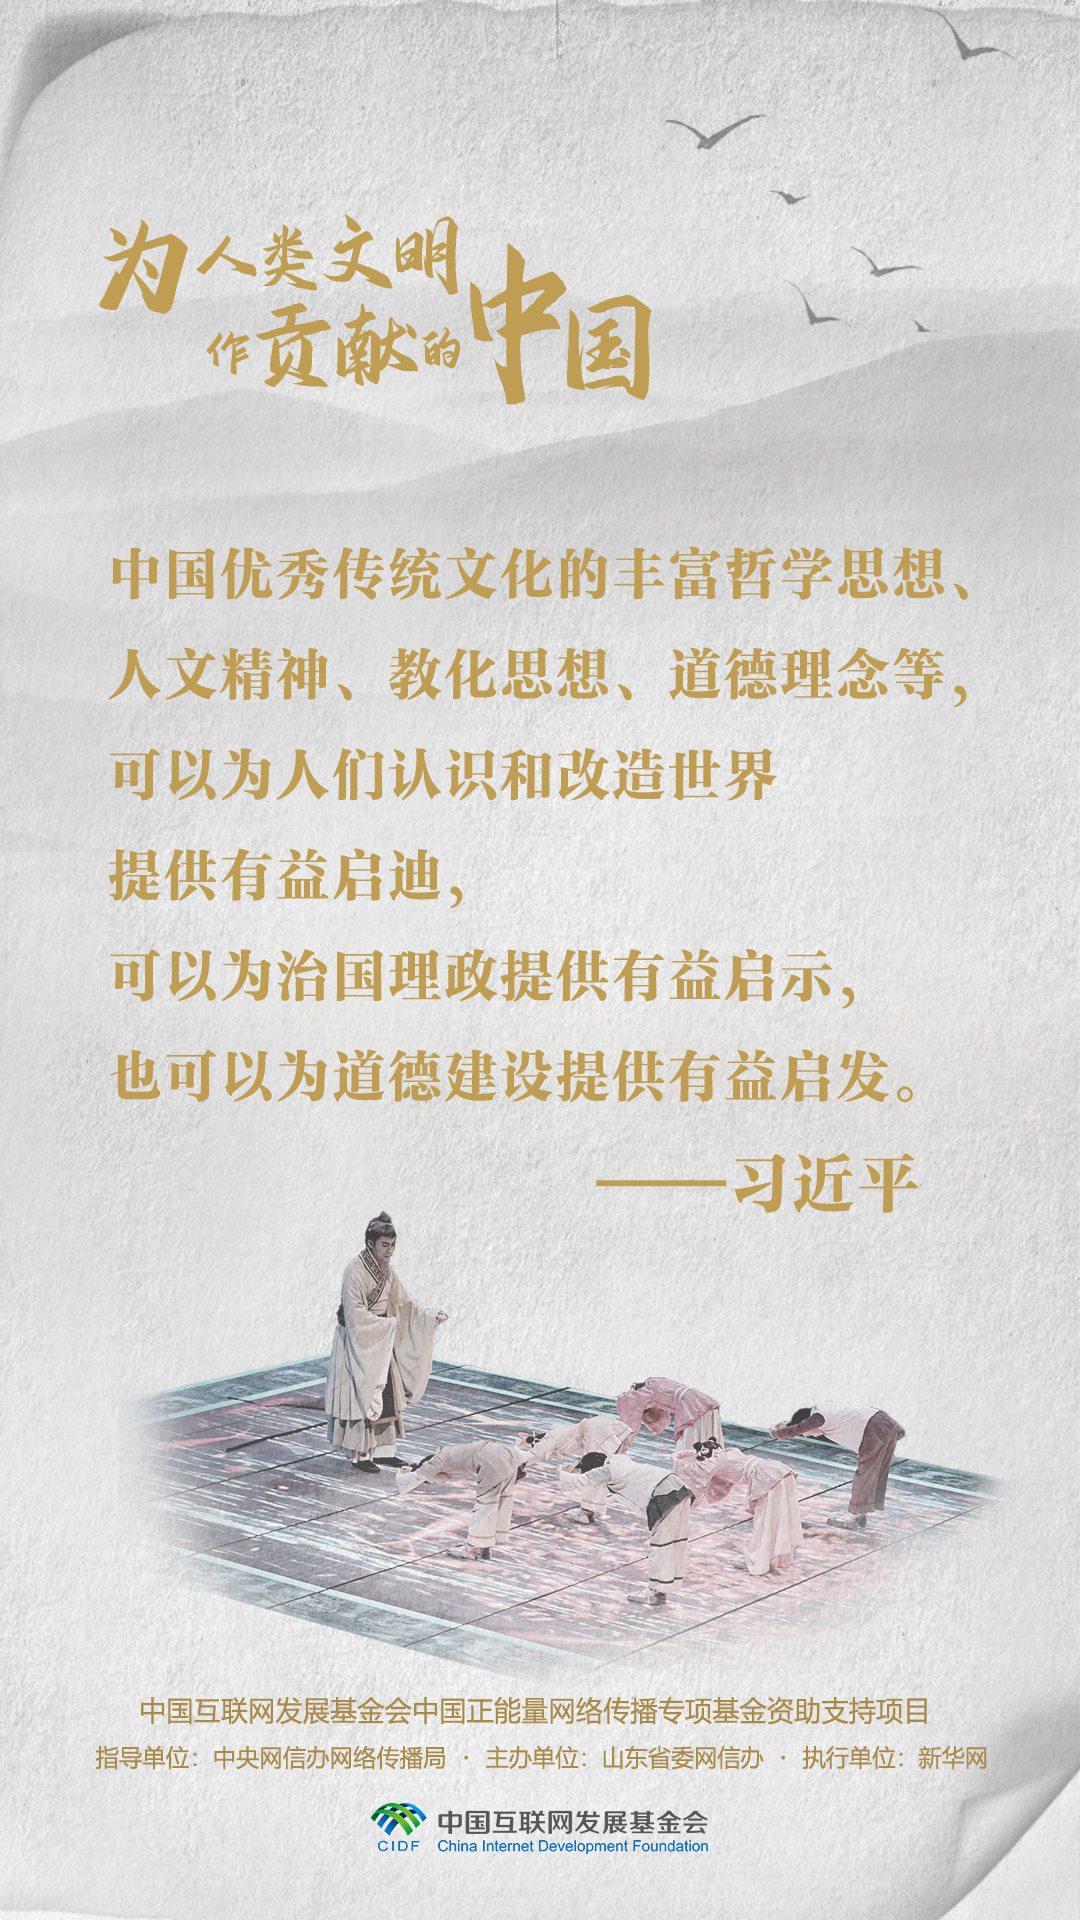 为人类文明
作贡献的中国
中国优秀传统文化的丰富哲学思想、
人文精神、教化思想、道德理念等，
可以为人们认识和改造世界
提供有益启迪，
可以为治国理政提供有益启示，
也可以为道德建设提供有益启发。
——习近平
中国互联网发展基金会中国正能量网络传播专项基金资助支持项目
指导单位：中央网信办网络传播局 · 主办单位：山东省委网信办 · 执行单位：新华网
CIDF
中国互联网发展基金会
China Internet Development Foundation